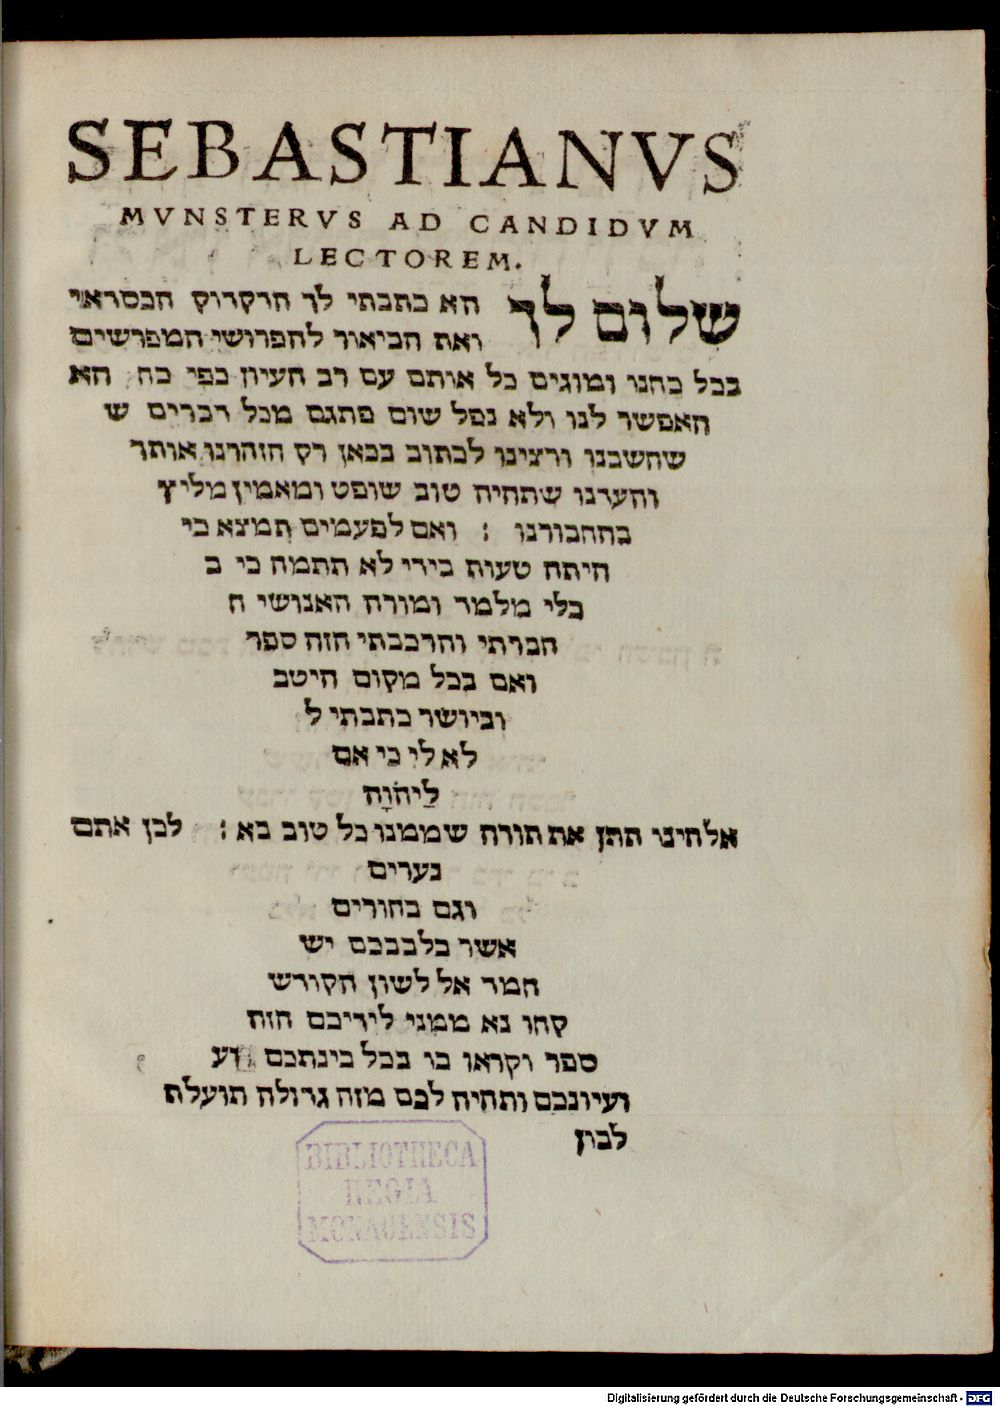 SEBASTIANVS
MVNSTERVS AD CANDIDVM
LECTOREM.
שלום לך הא כתבתי לך הדקדוק הכסדאי
ואת הביאור להפרושי המפרשים
בכל כחנו ומוגים כל אותם עם רב העיון כפי כח הא
האפשר לנו ולא נפל שום פתגם מכל דברים ש
שחשבנו ורצינו לכתוב בכאן רק הזהרנו אותך
והערנו שתהיה טוב שופט ומאמין מליץ
בחהבורנו : ואם לפעמים תמצא כי
היתה טעות בידי לא תתמה כי ב
בלי מלמד ומורה האנושי ח
חברתי והרכבתי הזה ספר
ואם בכל מקום היטב
וביושר כתבתי ל
לא לי כי אם
לַיהֹוָה
אלהינו תתן את תורה שממנו כל טוב בא : לכן אתם
נערים
וגם בחורים
אשר בלבבכם יש
חמד אל לשון הקודש
קחו נא ממני לידיכם הזה
ספר וקראו בו בכל בינתכם וע
ועיונכם ותהיה לכם מזה גדולה תועלת
לכון
BIBLIOTHECA
REGIA
MONACENSIS
Digitalisierung gefördert durch die Deutsche Forschungsgemeinschaft - DFG